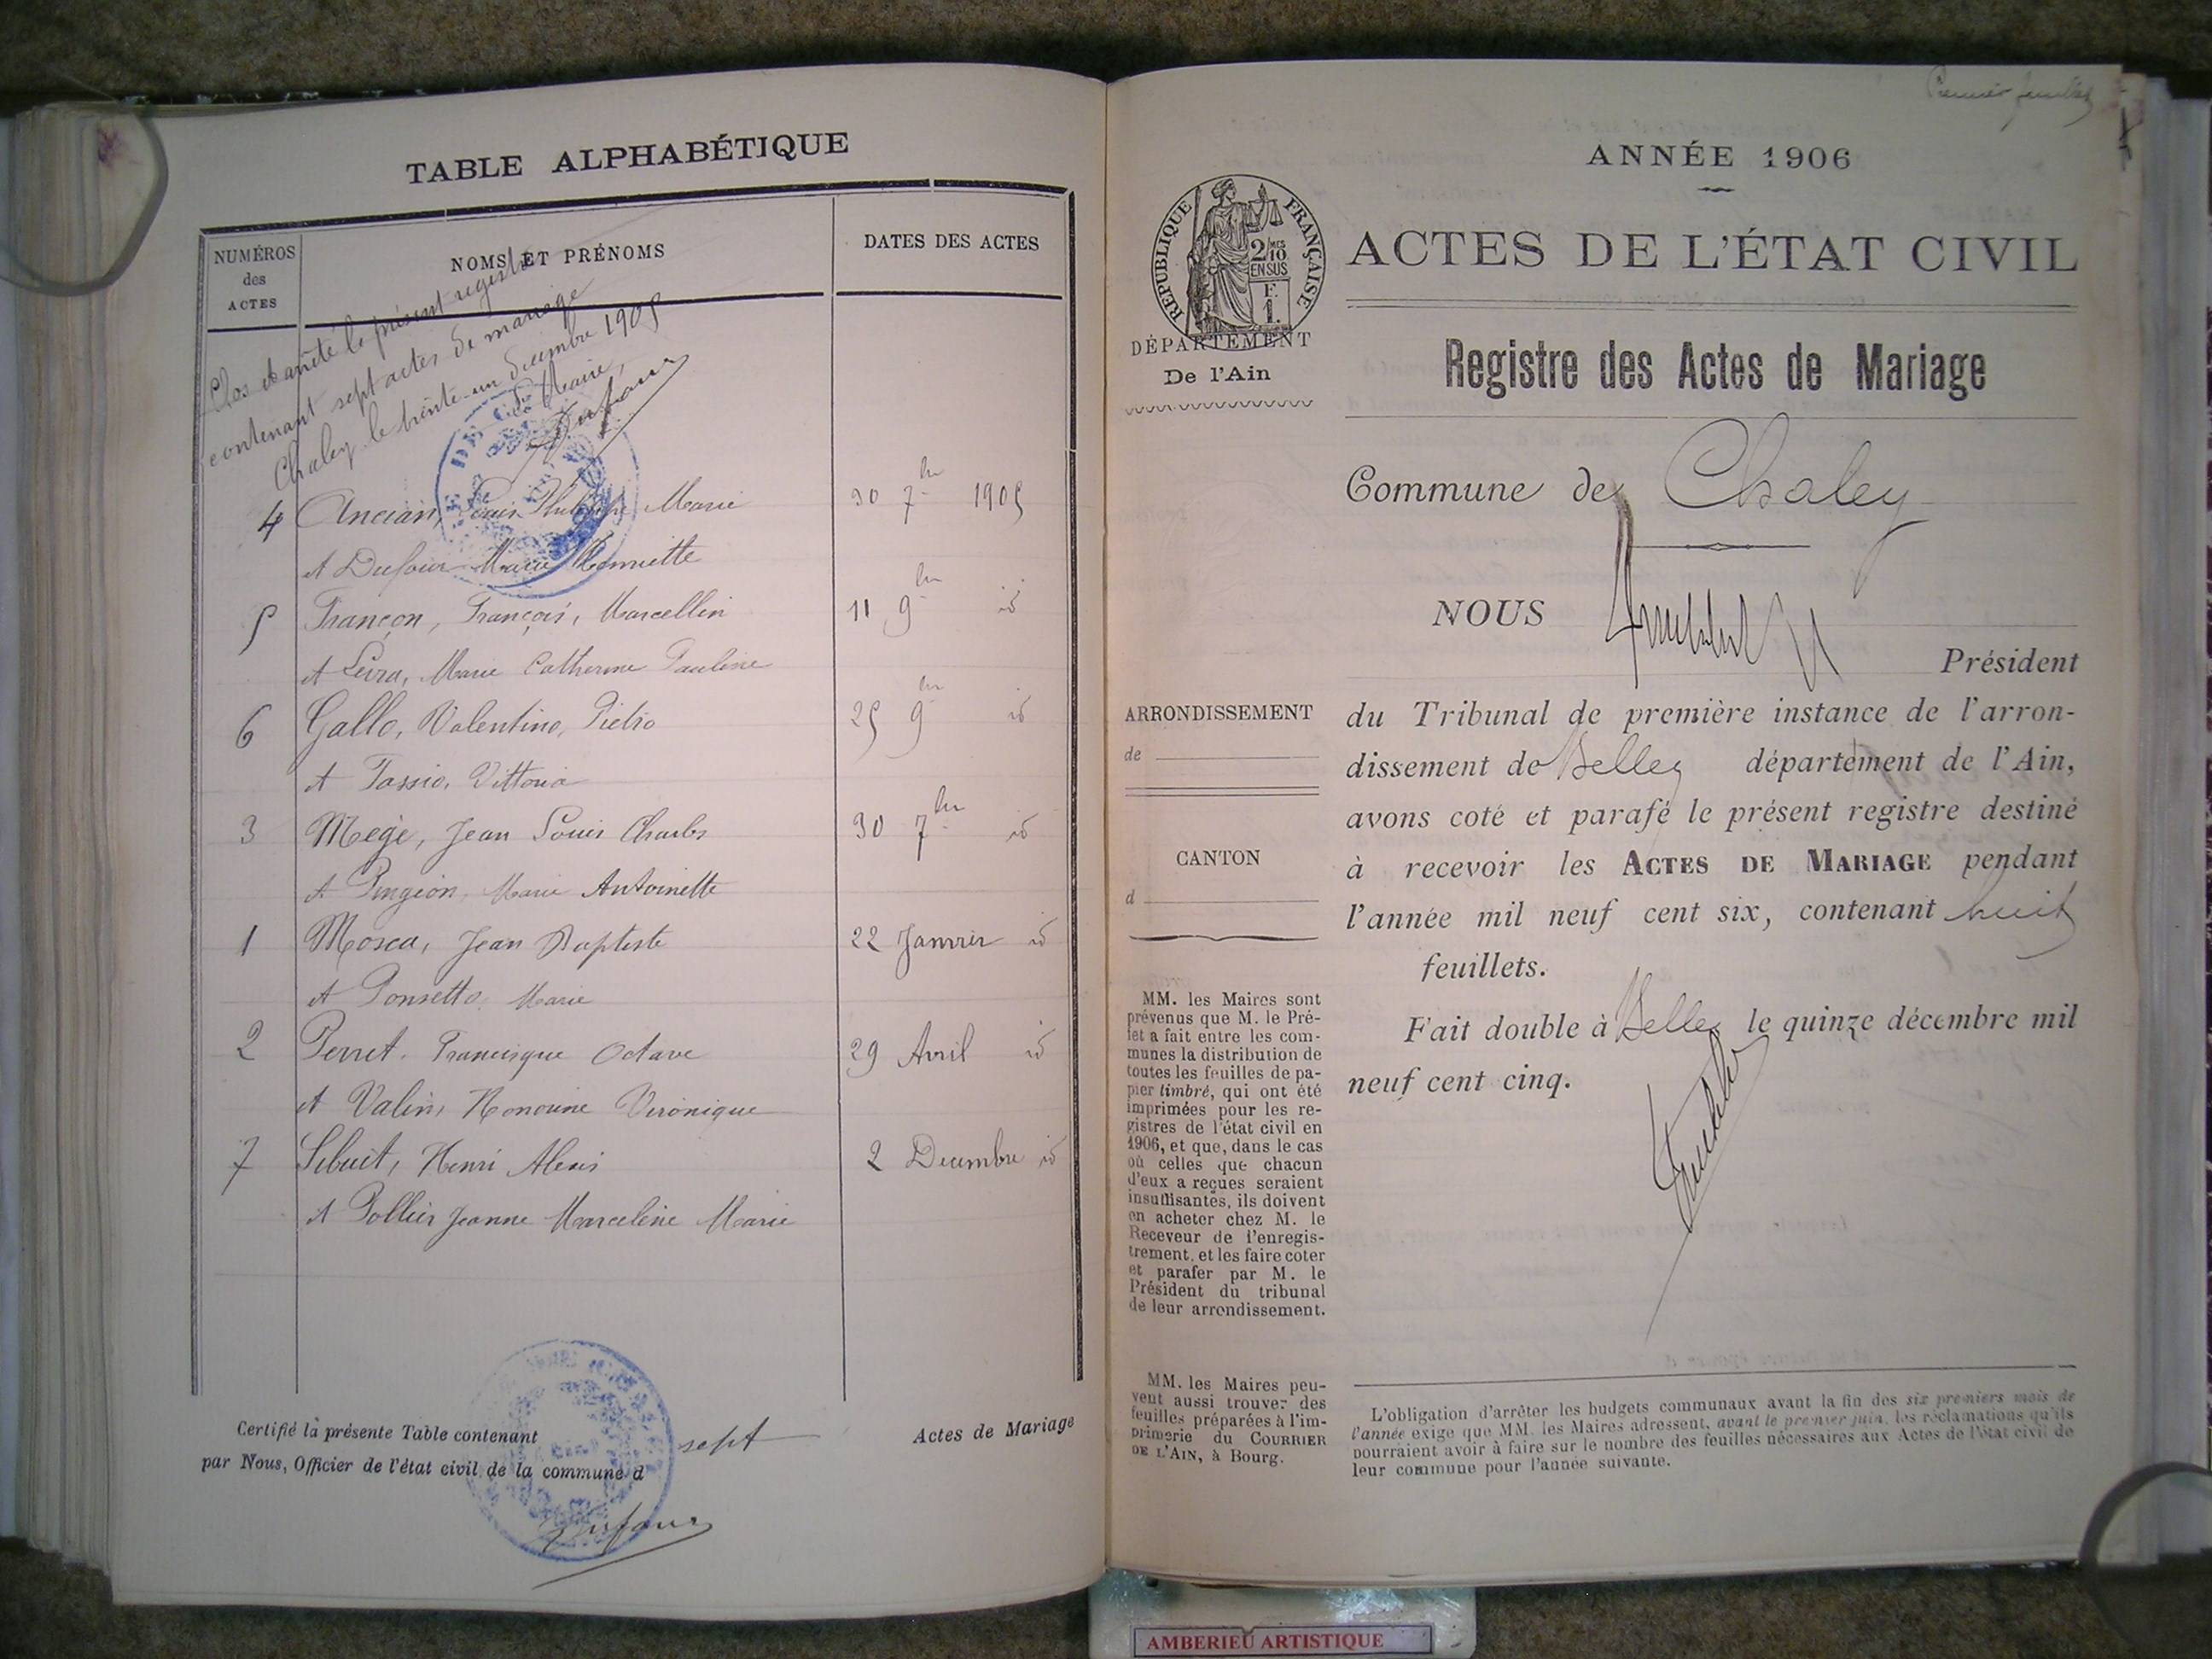 TABLE ALPHABÉTIQUE
NUMÉROS des ACTES
NOMS ET PRÉNOMS
DATES DES ACTES
Clos et arrêté le présent registre
contenant sept actes de mariage
Chaley le trente-un décembre 1905
Le Maire,
Dufour
4 Ancian, Louis Philippe Marie 30 7bre 1905
et Dufour Marie Henriette
5 Françon, François, Marcellin 11 9bre id
et Leyra, Marie Catherine Pauline
6 Gallo, Valentino, Pietro 25 9bre id
et Tassio, Vittoria
3 Mege, Jean Louis Charles 30 7bre id
et Pingeon, Marie Antoinette
1 Mosca, Jean Baptiste 22 Janvier id
et Ponsetto Marie
2 Perret. Francisque Octave 29 Avril id
et Valin, Honorine Véronique
7 Sibuit, Henri Alexis 2 Decembre id
et Pollier Jeanne Marceline Marie
Certifié la présente Table contenant sept Actes de Mariage
par Nous, Officier de l'état civil de la commune d
Dufour
Premier feuillet
ANNÉE 1906
RÉPUBLIQUE FRANÇAISE
2/MES 10 EN SUS
F. 1.
DÉPARTEMENT
De l'Ain
ACTES DE L'ÉTAT CIVIL
Registre des Actes de Mariage
Commune de Chaley
NOUS
Président
du Tribunal de première instance de l'arron-
dissement de Belley département de l'Ain,
avons coté et parafé le présent registre destiné
à recevoir les ACTES DE MARIAGE pendant
l'année mil neuf cent six, contenant huit
feuillets.
Fait double à Belley le quinze décembre mil
neuf cent cinq.
ARRONDISSEMENT
de
CANTON
d
MM. les Maires sont
prévenus que M. le Pré-
fet a fait entre les com-
munes la distribution de
toutes les feuilles de pa-
pier timbré, qui ont été
imprimées pour les re-
gistres de l'état civil en
1906, et que, dans le cas
où celles que chacun
d'eux a reçues seraient
insuffisantes, ils doivent
en acheter chez M. le
Receveur de l'enregis-
trement, et les faire coter
et parafer par M. le
Président du tribunal
de leur arrondissement.
MM. les Maires peu-
vent aussi trouver des
feuilles préparées à l'im-
primerie du COURRIER
DE L'AIN, à Bourg.
L'obligation d'arrêter les budgets communaux avant la fin des six premiers mois de
l'année exige que MM. les Maires adressent, avant le premier juin, les réclamations qu'ils
pourraient avoir à faire sur le nombre des feuilles nécessaires aux Actes de l'état civil de
leur commune pour l'année suivante.
AMBERIEU ARTISTIQUE